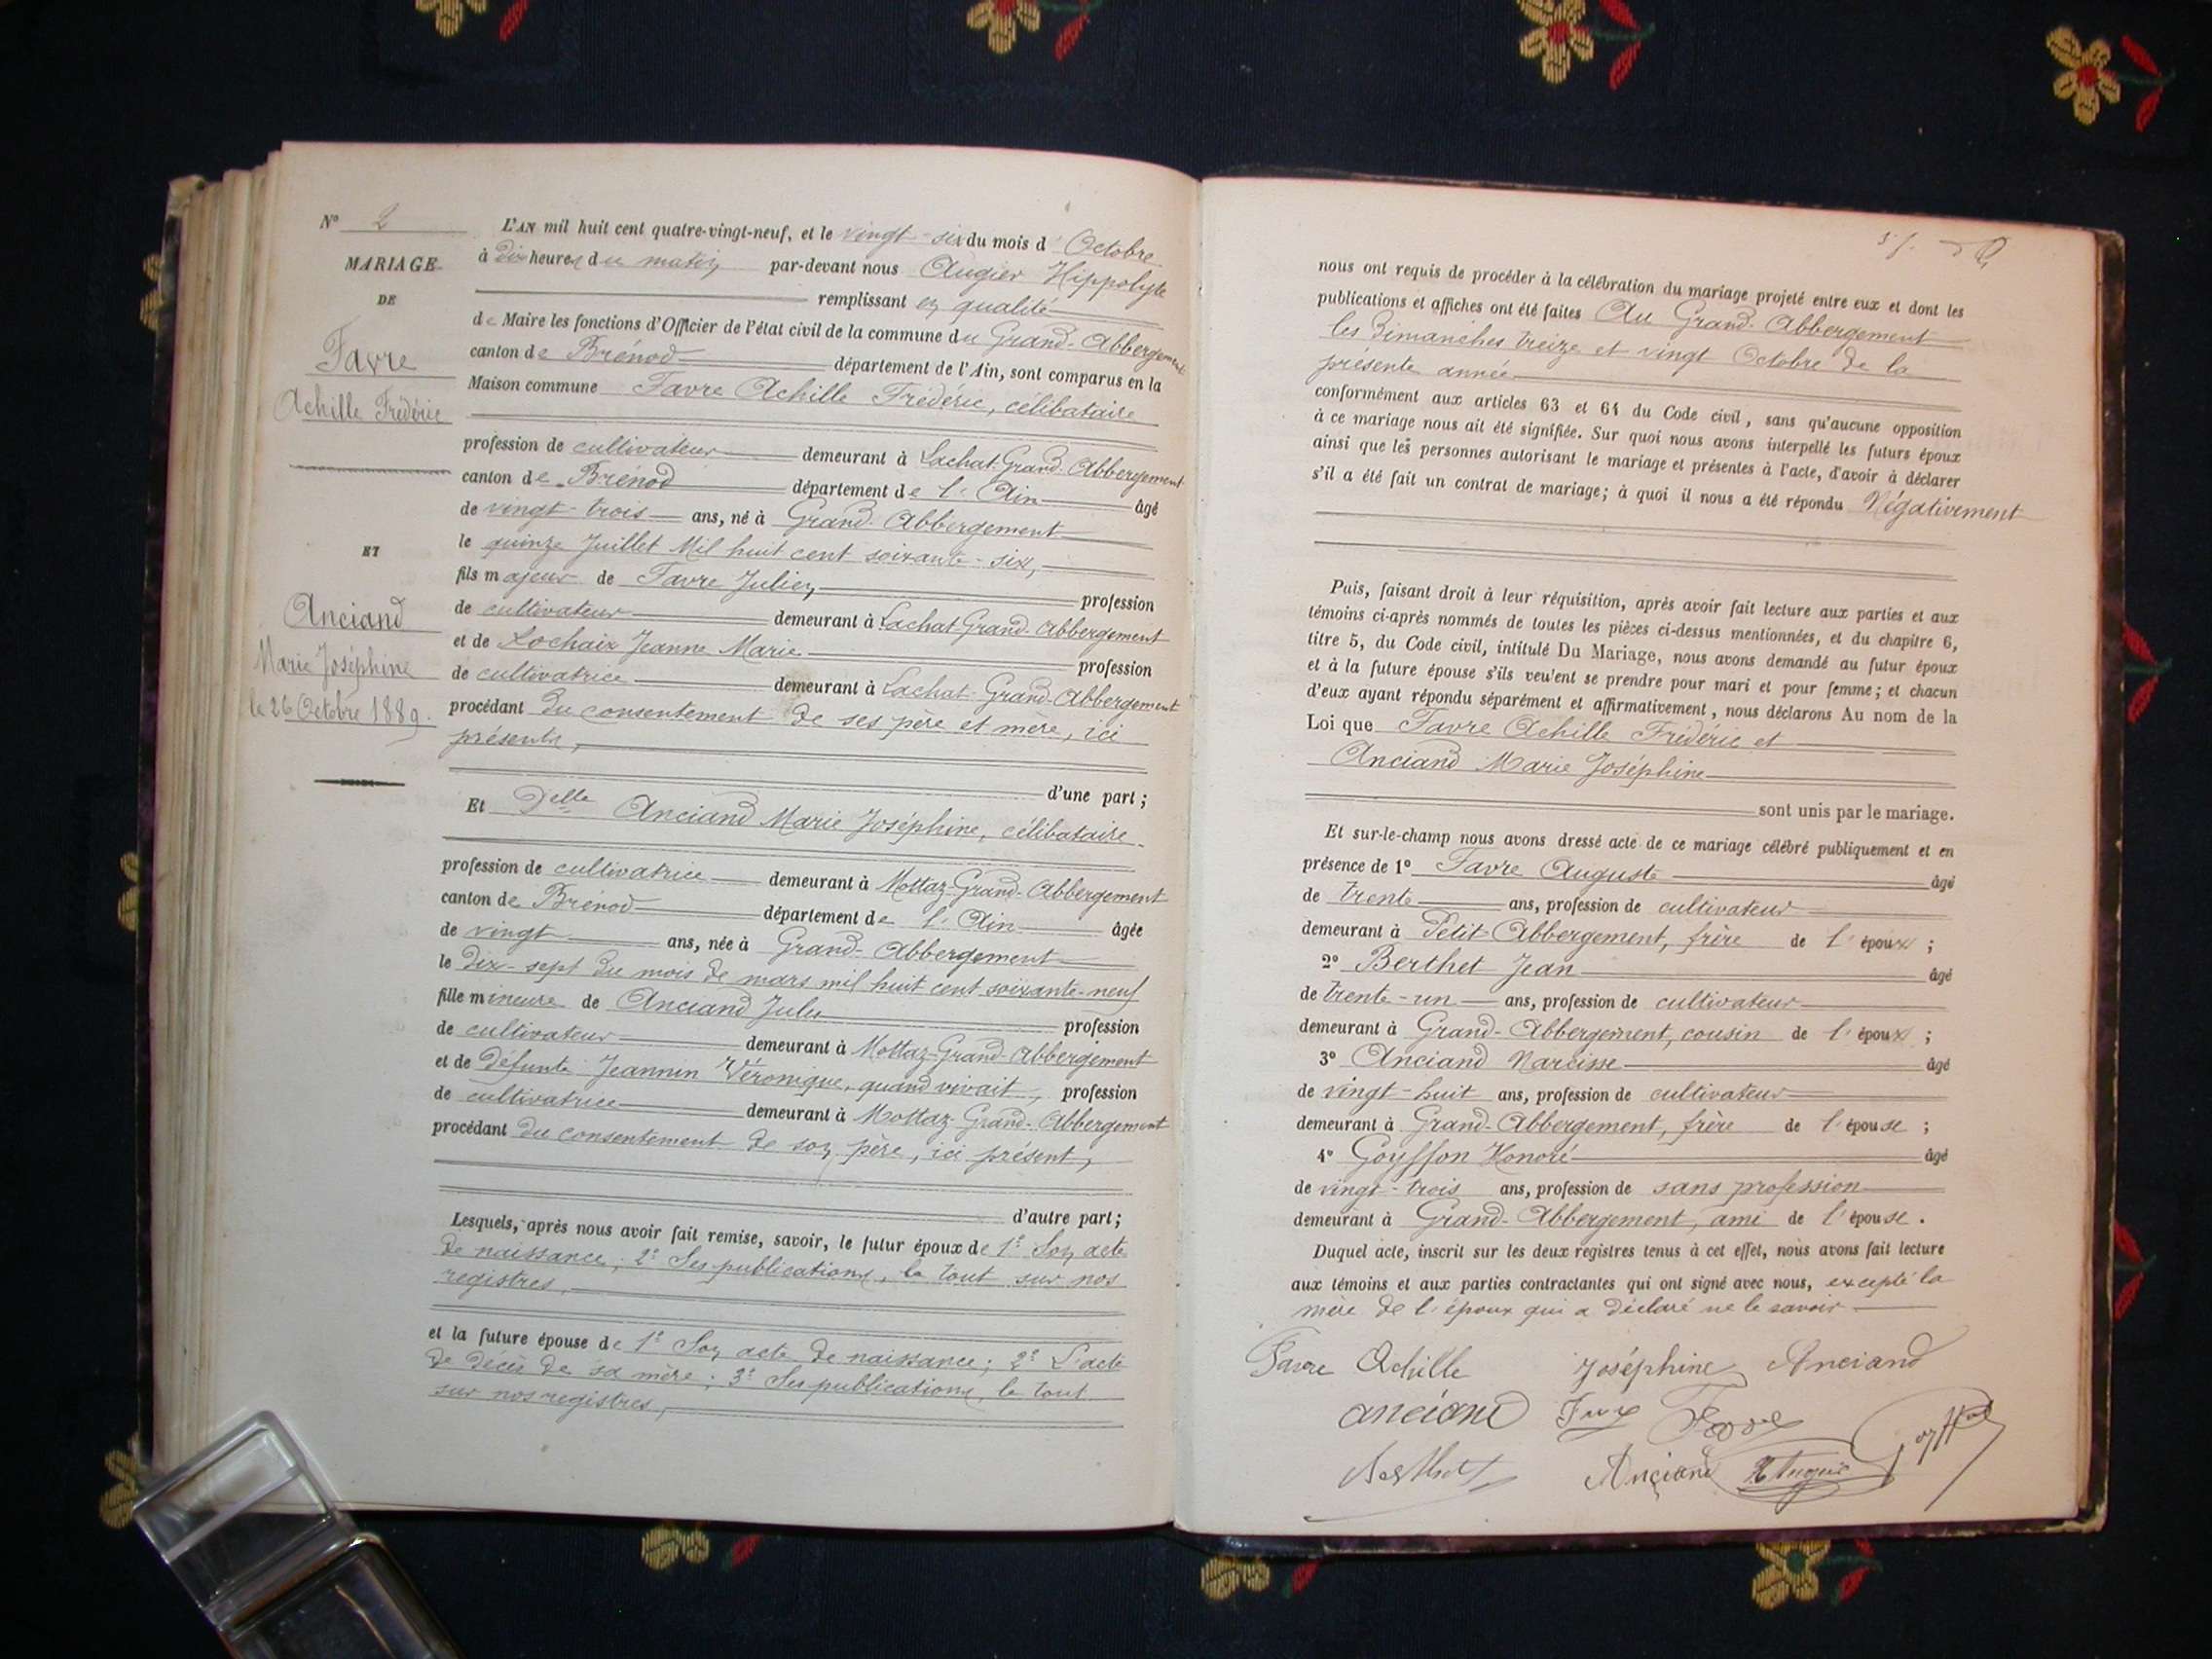 N° 2
MARIAGE
DE
Favre
Achille Frédéric
ET
Anciand
Marie Joséphine
le 26 Octobre 1889.
L'AN mil huit cent quatre-vingt-neuf, et le vingt-six du mois d'Octobre
à dix heures du matin par-devant nous Augier Hippolyte
remplissant en qualité
de Maire les fonctions d'Officier de l'état civil de la commune du Grand-Abbergement
canton de Brénod département de l'Ain, sont comparus en la
Maison commune Favre Achille Frédéric, célibataire
profession de cultivateur demeurant à Lachat-Grand-Abbergement
canton de Brénod département de l'Ain âgé
de vingt-trois ans, né à Grand-Abbergement
le quinze Juillet Mil huit cent soixante-six,
fils majeur de Favre Julien, profession
de cultivateur demeurant à Lachat Grand-Abbergement
et de Lochaix Jeanne Marie profession
de cultivatrice demeurant à Lachat-Grand-Abbergement
procédant du consentement de ses père et mère, ici
présents,
d'une part;
Et Delle Anciand Marie Joséphine, célibataire
profession de cultivatrice demeurant à Mottaz-Grand-Abbergement
canton de Brénod département de l'Ain âgée
de vingt ans, née à Grand-Abbergement
le dix-sept du mois de mars mil huit cent soixante-neuf
fille mineure de Anciand Jules profession
de cultivateur demeurant à Mottaz-Grand-Abbergement
et de défunte Jeannin Véronique, quand vivait, profession
de cultivatrice demeurant à Mottaz Grand-Abbergement
procédant du consentement de son père, ici présent,
d'autre part;
Lesquels, après nous avoir fait remise, savoir, le futur époux de 1° Son acte
de naissance; 2° Ses publications, le tout sur nos
registres,
et la future épouse de 1° Son acte de naissance; 2° L'acte
de décès de sa mère; 3° Ses publications, le tout
sur nos registres,
nous ont requis de procéder à la célébration du mariage projeté entre eux et dont les
publications et affiches ont été faites Au Grand-Abbergement
les Dimanches treize et vingt Octobre de la
présente année
conformément aux articles 63 et 64 du Code civil, sans qu'aucune opposition
à ce mariage nous ait été signifiée. Sur quoi nous avons interpellé les futurs époux
ainsi que les personnes autorisant le mariage et présentes à l'acte, d'avoir à déclarer
s'il a été fait un contrat de mariage; à quoi il nous a été répondu Négativement
Puis, faisant droit à leur réquisition, après avoir fait lecture aux parties et aux
témoins ci-après nommés de toutes les pièces ci-dessus mentionnées, et du chapitre 6,
titre 5, du Code civil, intitulé Du Mariage, nous avons demandé au futur époux
et à la future épouse s'ils veulent se prendre pour mari et pour femme; et chacun
d'eux ayant répondu séparément et affirmativement, nous déclarons Au nom de la
Loi que Favre Achille Frédéric et
Anciand Marie Joséphine
sont unis par le mariage.
Et sur-le-champ nous avons dressé acte de ce mariage célébré publiquement et en
présence de 1° Favre Auguste âgé
de trente ans, profession de cultivateur
demeurant à Petit-Abbergement, frère de l'époux;
2° Berthet Jean âgé
de trente-un ans, profession de cultivateur
demeurant à Grand-Abbergement, cousin de l'époux;
3° Anciand Narcisse âgé
de vingt-huit ans, profession de cultivateur
demeurant à Grand-Abbergement, frère de l'épouse;
4° Goyffon Honoré âgé
de vingt-trois ans, profession de sans profession
demeurant à Grand-Abbergement, ami de l'épouse.
Duquel acte, inscrit sur les deux registres tenus à cet effet, nous avons fait lecture
aux témoins et aux parties contractantes qui ont signé avec nous, excepté la
mère de l'époux qui a déclaré ne le savoir
Favre Achille Joséphine Anciand
anciand Favre Goyffon
Berthet Anciand H Augier